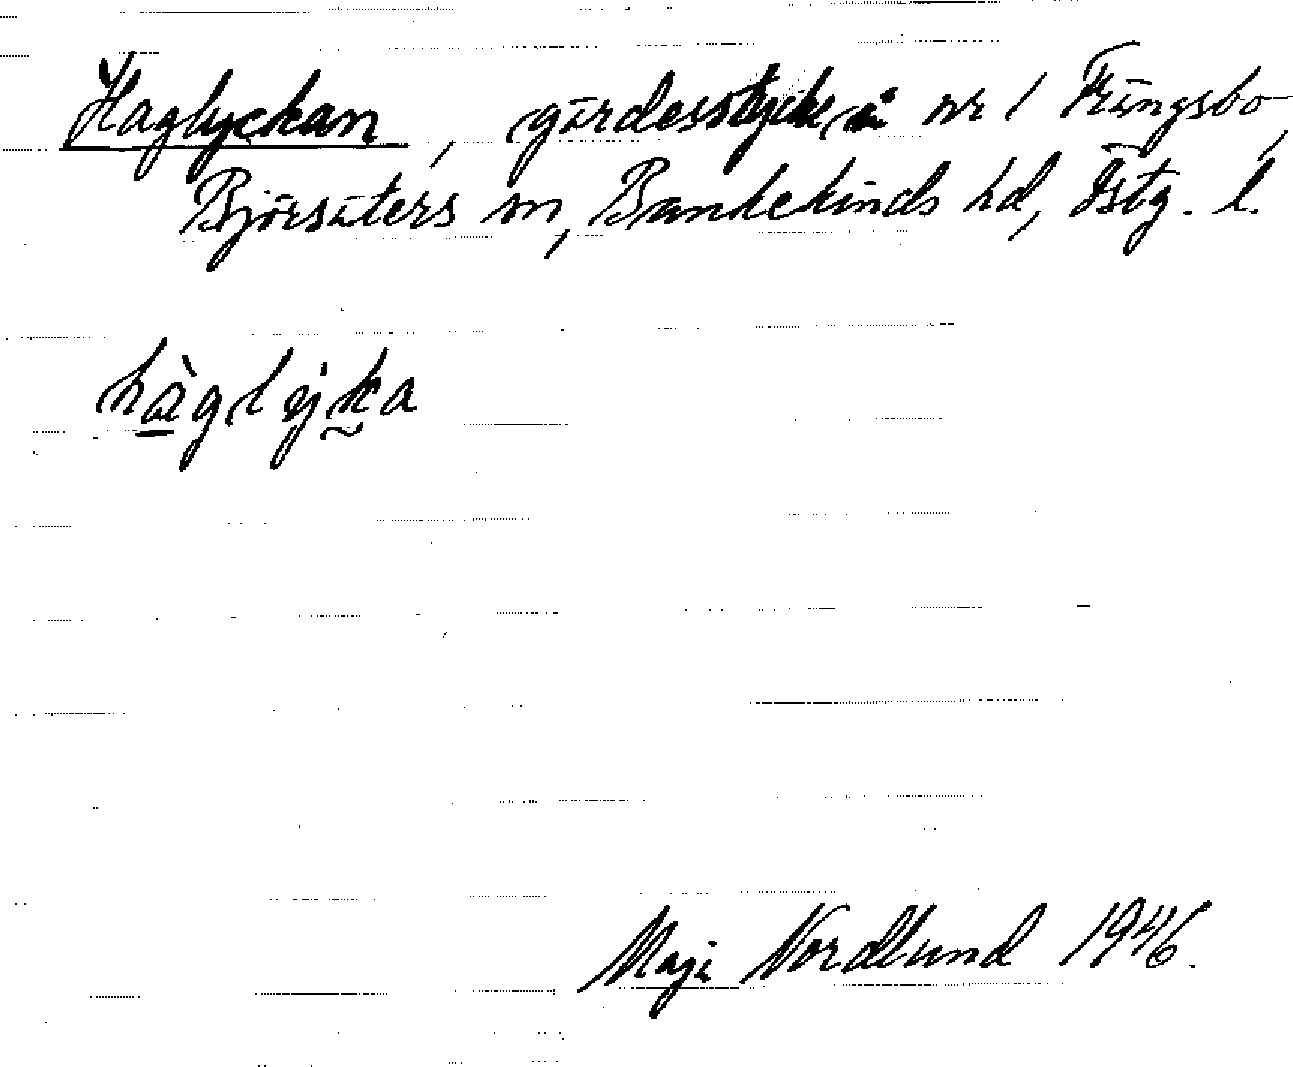 Haglyckan, gärdesstycke å nr 1 Frängsbo,
Björsäters sn, Bankekinds hd, Östg. l.
hàglýka
Maja Nordlund 1946.